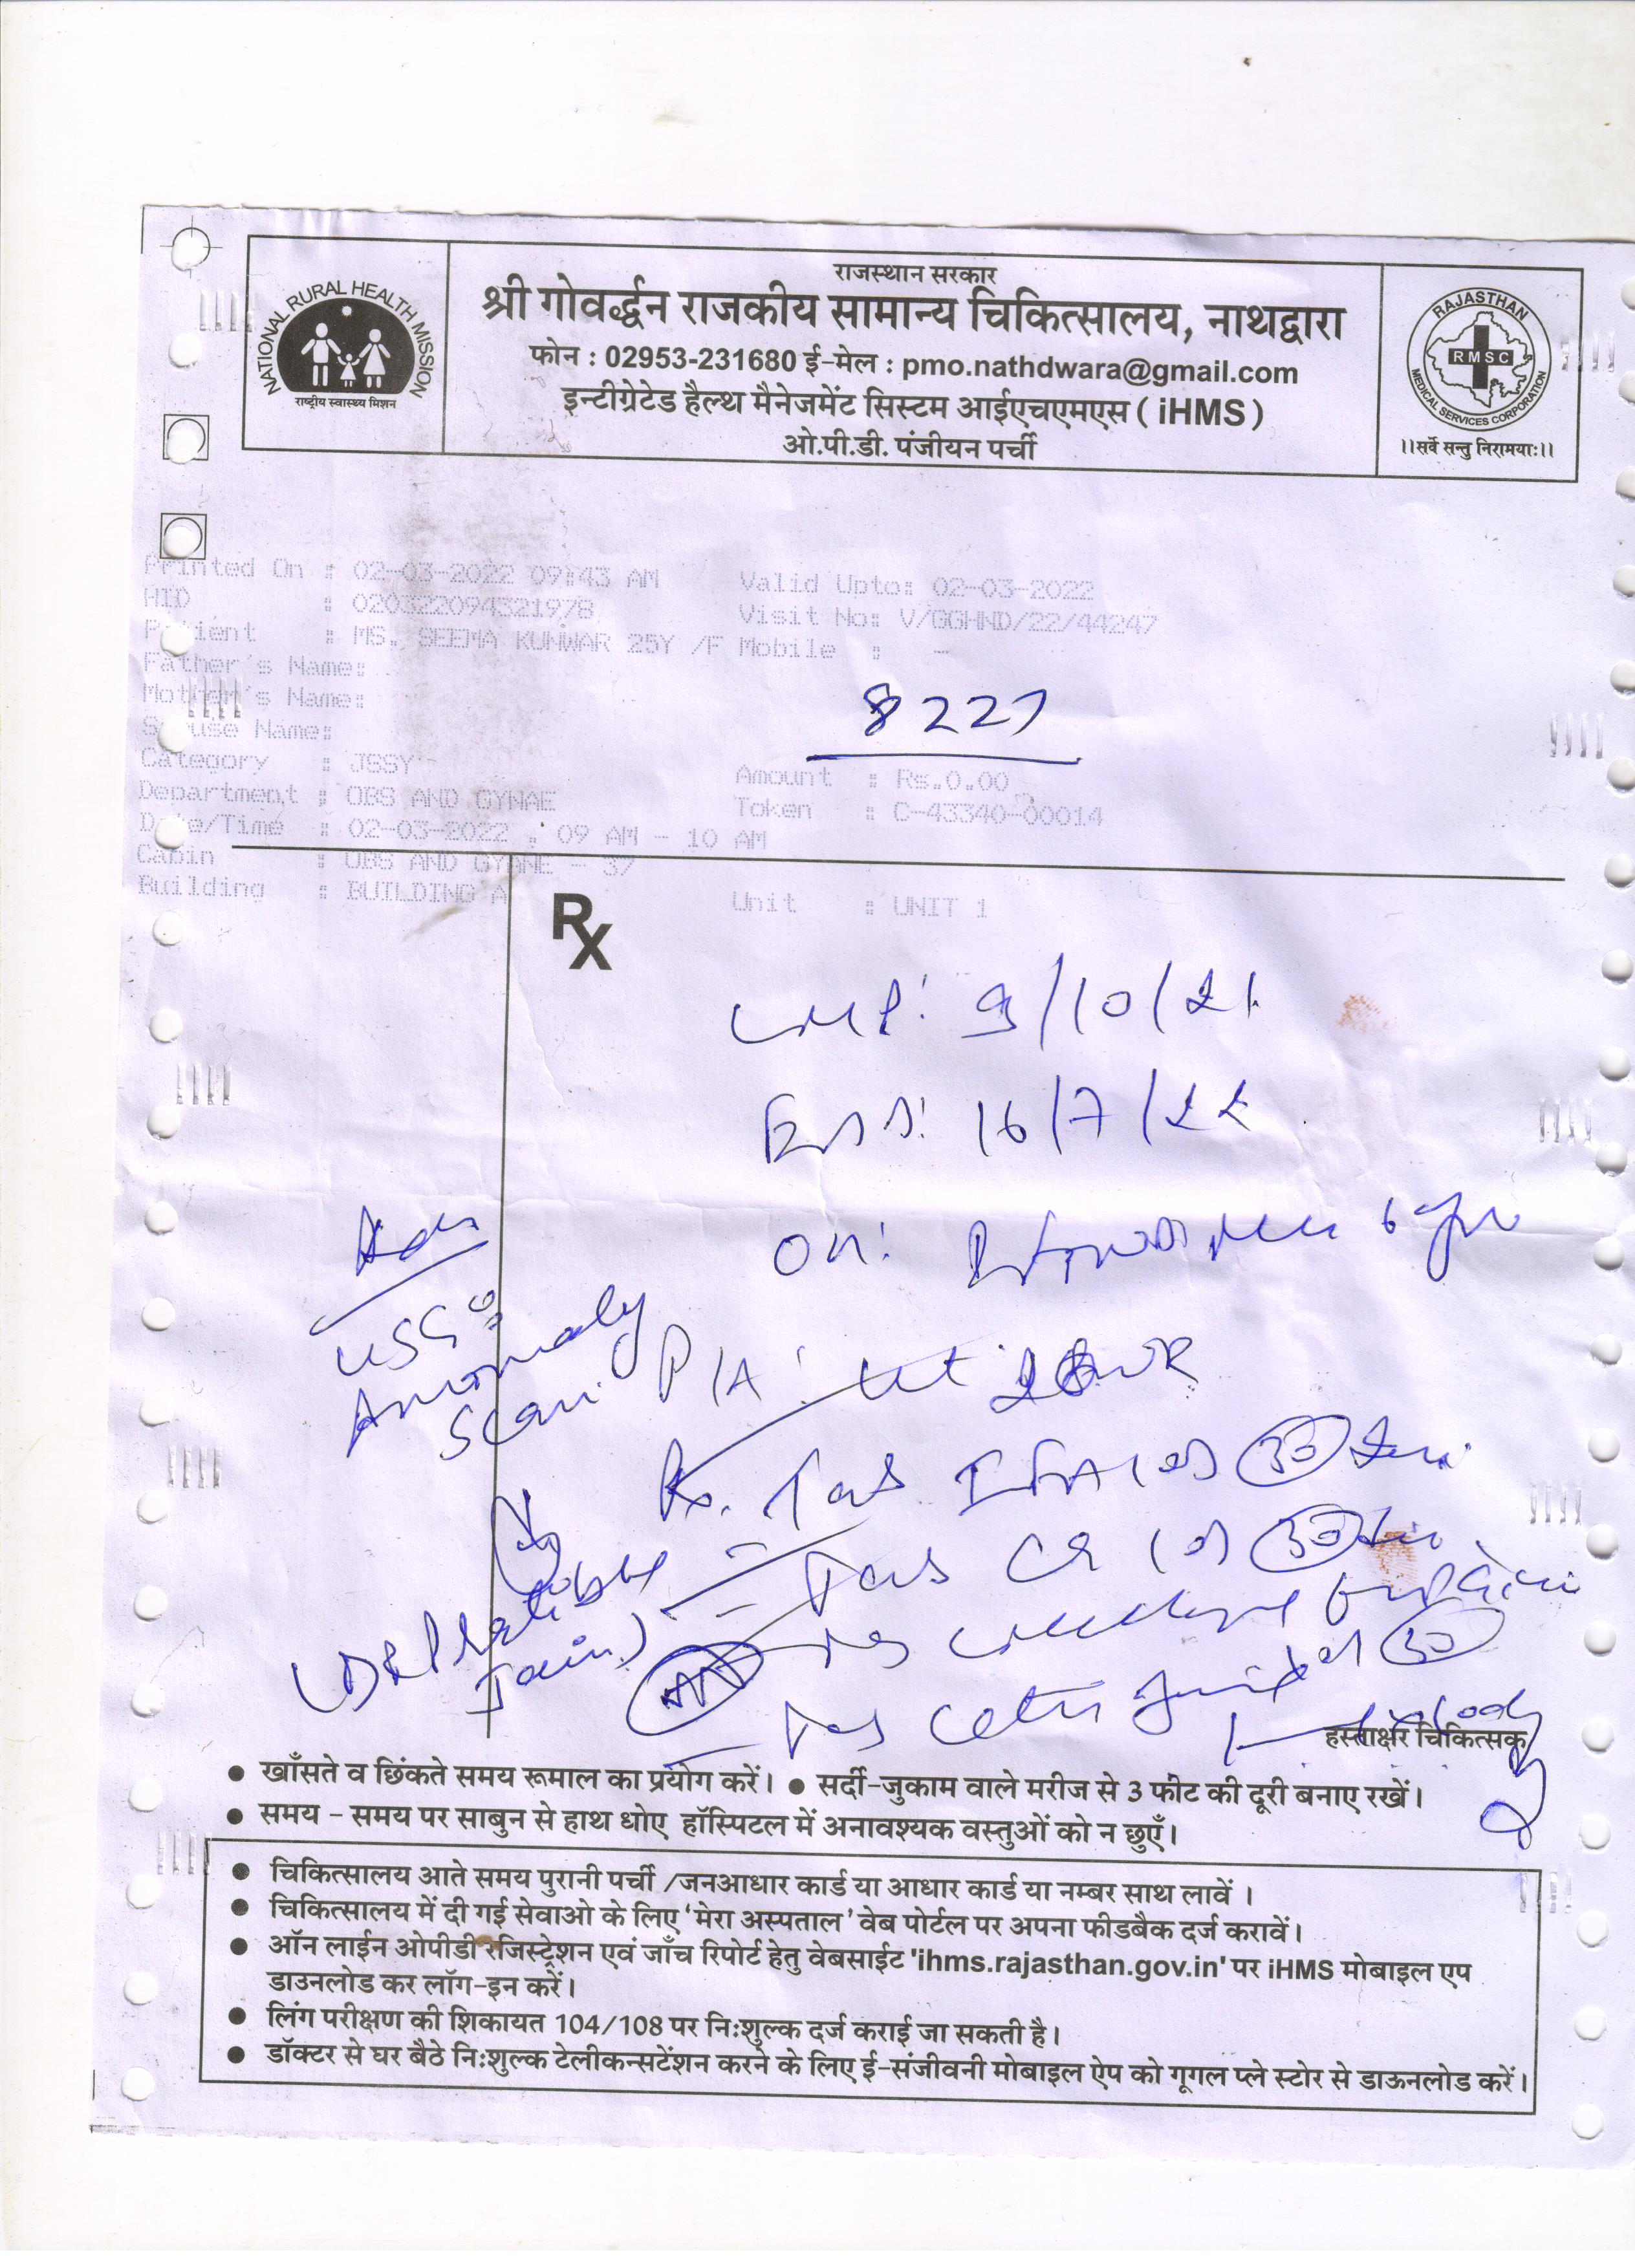 राजस्थान सरकार
श्री गोवर्द्धन राजकीय सामान्य चिकित्सालय, नाथद्वारा
फोन : 02953-231680 ई-मेल : pmo.nathdwara@gmail.com
इन्टीग्रेटेड हैल्थ मैनेजमेंट सिस्टम आईएचएमएस ( iHMS )
ओ.पी.डी. पंजीयन पर्ची
NATIONAL RURAL HEALTH MISSION
राष्ट्रीय स्वास्थ्य मिशन
RAJASTHAN
RMSC
MEDICAL SERVICES CORPORATION
।।सर्वे सन्तु निरामयाः।।
Printed On : 02-03-2022 09:43 AM Valid Upto: 02-03-2022
HID : 020322094321978 Visit No: V/GGHND/22/44247
Patient : MS. SEEMA KUNWAR 25Y /F Mobile : -
Father's Name:
Mother's Name:
Spouse Name:
8227
Category : JSSY Amount : Rs.0.00
Department : OBS AND GYNAE Token : C-43340-00014
Date/Time : 02-03-2022 , 09 AM - 10 AM
Cabin : OBS AND GYANE - 37
Building : BUILDING A Unit : UNIT 1
Rx
LMP: 9/10/21
EDD: 16/7/22
Adv
USG:
Anomaly
Scan
P/A: Ut
Rx. Tab IFA (30)
Tab (30)
Tab
Tab (30)
Jain)
हस्ताक्षर चिकित्सक
● खाँसते व छिंकते समय रूमाल का प्रयोग करें। ● सर्दी-जुकाम वाले मरीज से 3 फीट की दूरी बनाए रखें।
● समय - समय पर साबुन से हाथ धोए हॉस्पिटल में अनावश्यक वस्तुओं को न छुएँ।
● चिकित्सालय आते समय पुरानी पर्ची /जनआधार कार्ड या आधार कार्ड या नम्बर साथ लावें ।
● चिकित्सालय में दी गई सेवाओ के लिए 'मेरा अस्पताल' वेब पोर्टल पर अपना फीडबैक दर्ज करावें।
● ऑन लाईन ओपीडी रजिस्ट्रेशन एवं जाँच रिपोर्ट हेतु वेबसाईट 'ihms.rajasthan.gov.in' पर iHMS मोबाइल एप
डाउनलोड कर लॉग-इन करें।
● लिंग परीक्षण की शिकायत 104/108 पर निःशुल्क दर्ज कराई जा सकती है।
● डॉक्टर से घर बैठे निःशुल्क टेलीकन्सटेंशन करने के लिए ई-संजीवनी मोबाइल ऐप को गूगल प्ले स्टोर से डाऊनलोड करें।